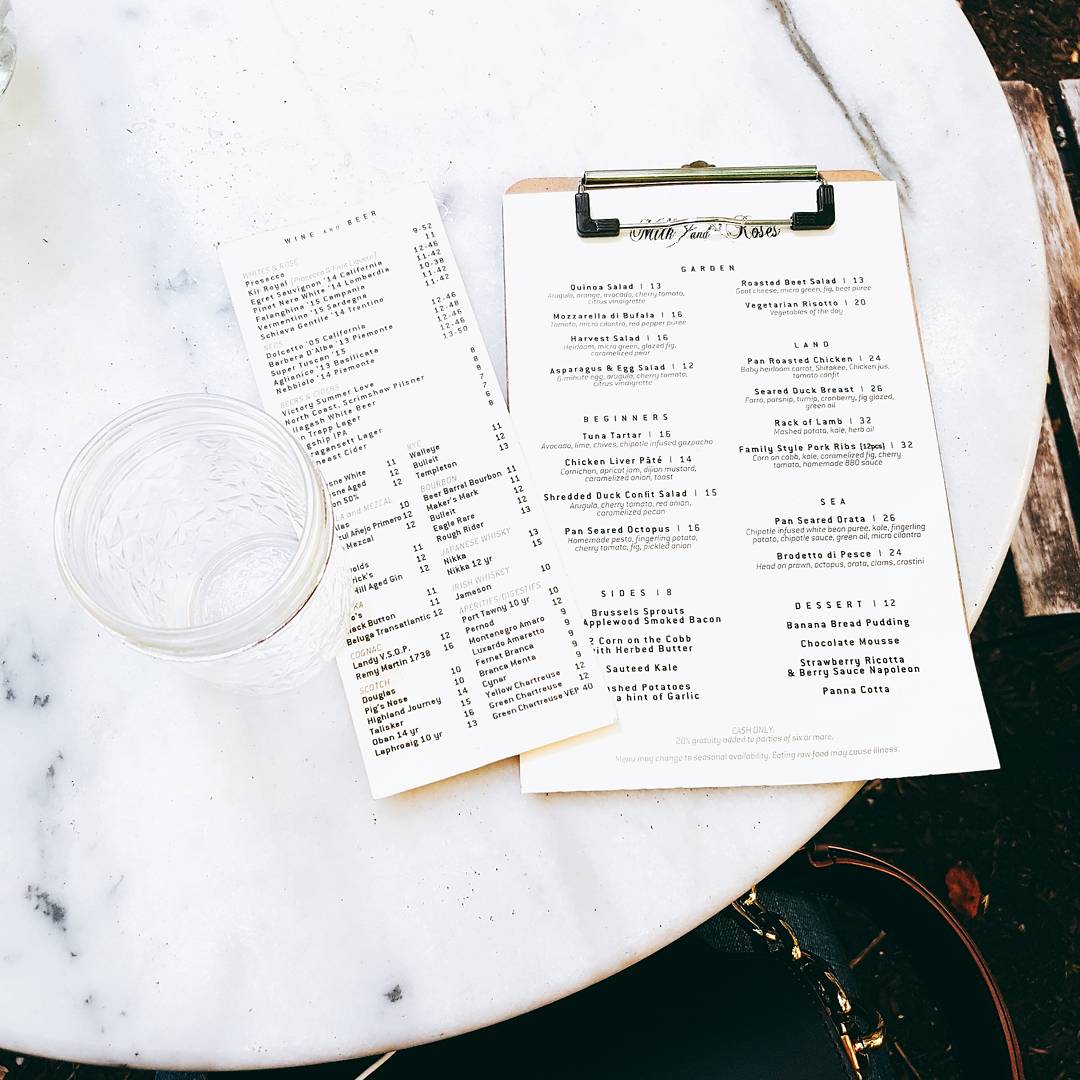 WINE AND BEER
WHITES & ROSÉ
Prosecco 9-52
Kir Royal (Prosecco & Fruit Liqueur) 11
Egret Sauvignon '14 California 12-46
Pinot Nero White '14 Lombardia 11-42
Falanghina '15 Campania 10-38
Vermentino '15 Sardegna 11-42
Schiava Gentile '14 Trentino 11-42
REDS
Dolcetto '05 California 12-46
Barbera D'Alba '13 Piemonte 12-48
Super Tuscan '15 12-46
Aglianico '13 Basilicata 12-46
Nebbiolo '14 Piemonte 13-50
BEERS & CIDERS
Victory Summer Love 8
North Coast, Scrimshaw Pilsner 8
Allagash White Beer 7
Trapp Lager 7
IPA 6
Lager 6
Cider 8
White 11
Aged 12
50% 12
and MEZCAL
10
Añejo Primero 12
Mezcal
11
11
Hill Aged Gin 12
11
Black Button 11
Beluga Transatlantic 12
COGNAC
Landy V.S.O.P. 12
Remy Martin 1738 16
SCOTCH
Douglas 10
Pig's Nose 10
Highland Journey 14
Talisker 15
Oban 14 yr 16
Laphroaig 10 yr 13
RYE
Walleye 11
Bulleit 12
Templeton 13
BOURBON
Beer Barrel Bourbon 11
Maker's Mark 12
Bulleit 12
Eagle Rare 12
Rough Rider 13
JAPANESE WHISKY
Nikka 13
Nikka 12 yr 15
IRISH WHISKEY
Jameson 10
APERITIFS/DIGESTIFS
Port Tawny 10 yr 10
Pernod 12
Montenegro Amaro 9
Luxardo Amaretto 9
Fernet Branca 9
Branca Menta 9
Cynar 9
Yellow Chartreuse 12
Green Chartreuse 12
Green Chartreuse VEP 40
Milk and Roses
GARDEN
Quinoa Salad | 13
Arugula, orange, avocado, cherry tomato,
citrus vinaigrette
Mozzarella di Bufala | 16
Tomato, micro cilantro, red pepper puree
Harvest Salad | 16
Heirloom, micro green, glazed fig,
caramelized pear
Asparagus & Egg Salad | 12
6-minute egg, arugula, cherry tomato,
citrus vinaigrette
Roasted Beet Salad | 13
Goat cheese, micro green, fig, beet puree
Vegetarian Risotto | 20
Vegetables of the day
BEGINNERS
Tuna Tartar | 16
Avocado, lime, chives, chipotle infused gazpacho
Chicken Liver Pâté | 14
Cornichon, apricot jam, dijon mustard,
caramelized onion, toast
Shredded Duck Confit Salad | 15
Arugula, cherry tomato, red onion,
caramelized pecan
Pan Seared Octopus | 16
Homemade pesto, fingerling potato,
cherry tomato, fig, pickled onion
LAND
Pan Roasted Chicken | 24
Baby heirloom carrot, Shitakee, Chicken jus,
tomato confit
Seared Duck Breast | 26
Farro, parsnip, turnip, cranberry, fig glazed,
green oil
Rack of Lamb | 32
Mashed potato, kale, herb oil
Family Style Pork Ribs (12pcs) | 32
Corn on cobb, kale, caramelized fig, cherry
tomato, homemade BBQ sauce
SEA
Pan Seared Orata | 26
Chipotle infused white bean puree, kale, fingerling
potato, chipotle sauce, green oil, micro cilantro
Brodetto di Pesce | 24
Head on prawn, octopus, orata, clams, crostini
SIDES | 8
Brussels Sprouts
Applewood Smoked Bacon
Corn on the Cobb
with Herbed Butter
Sauteed Kale
Potatoes
a hint of Garlic
DESSERT | 12
Banana Bread Pudding
Chocolate Mousse
Strawberry Ricotta
& Berry Sauce Napoleon
Panna Cotta
CASH ONLY.
20% gratuity added to parties of six or more.
Menu may change to seasonal availability. Eating raw food may cause illness.